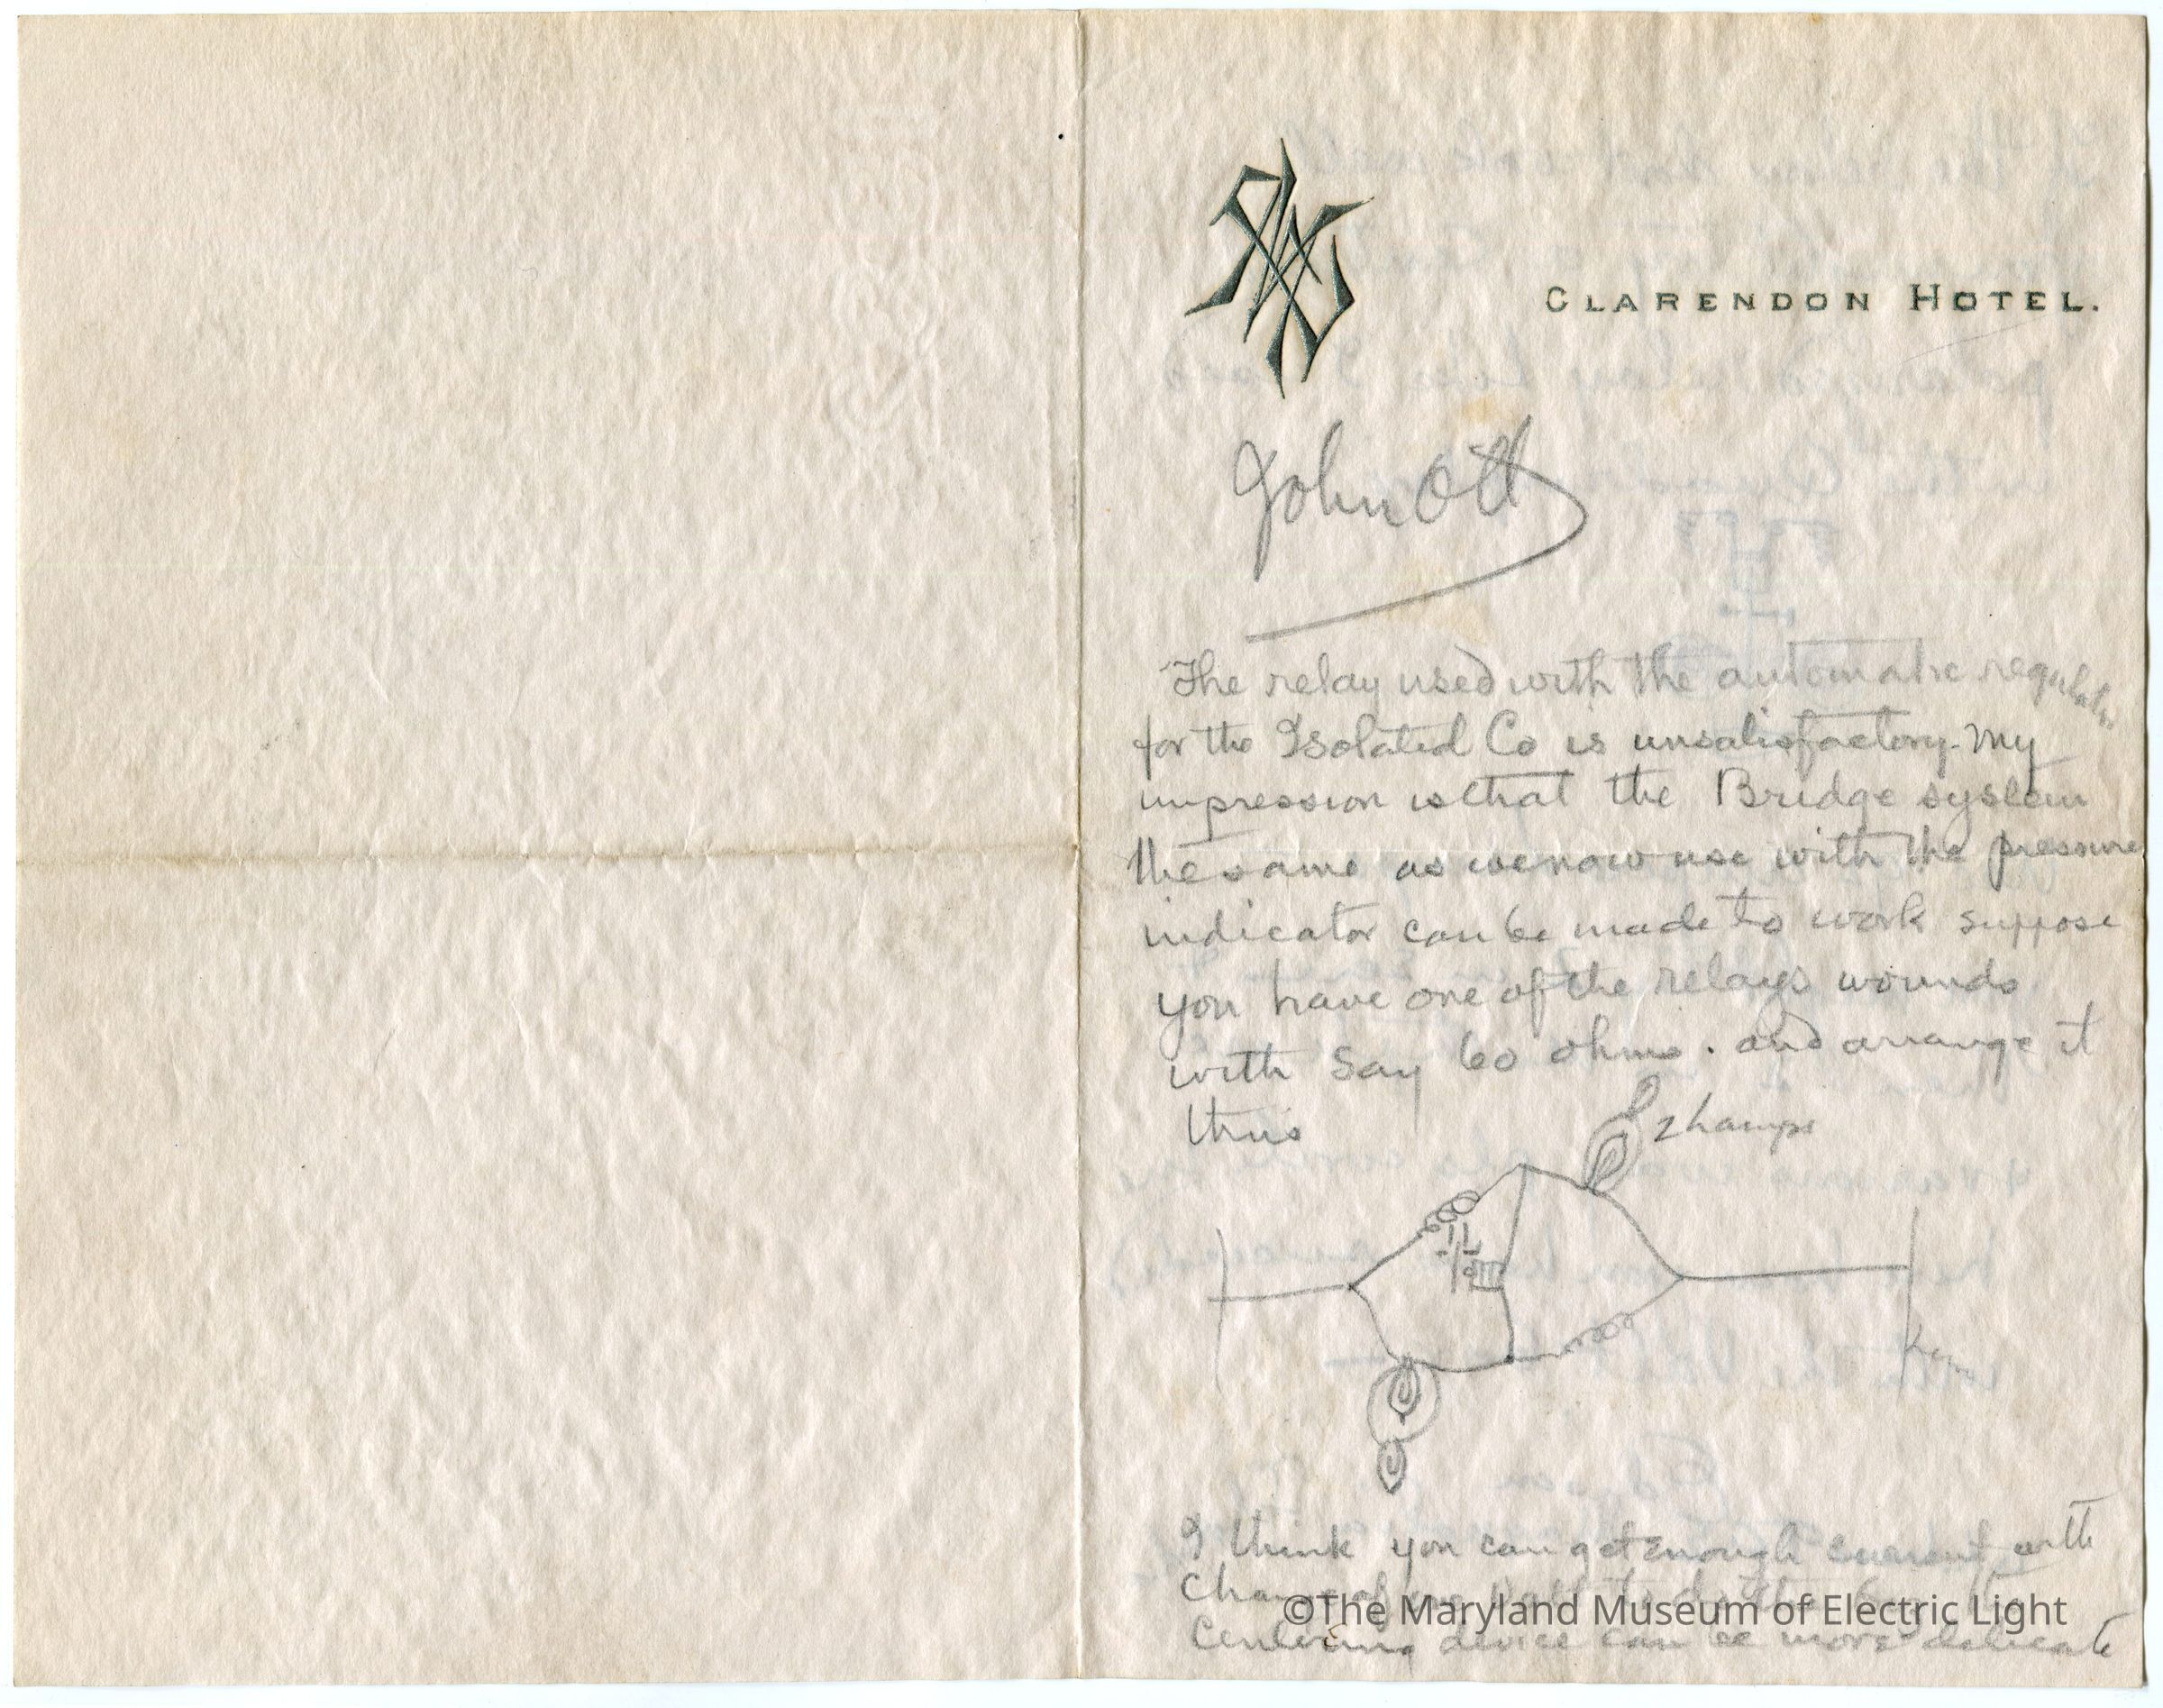 CLARENDON HOTEL.
John Ott
The relay used with the automatic regulator
for the Isolated Co is unsatisfactory. My
impression is that the Bridge system
the same as we now use with the pressure
indicator can be made to work suppose
you have one of the relays wounds
with say 60 ohms. and arrange it
thus
2 Lamps
I think you can get enough current with
of
©The Maryland Museum of Electric Light
Centering device can be more delicate